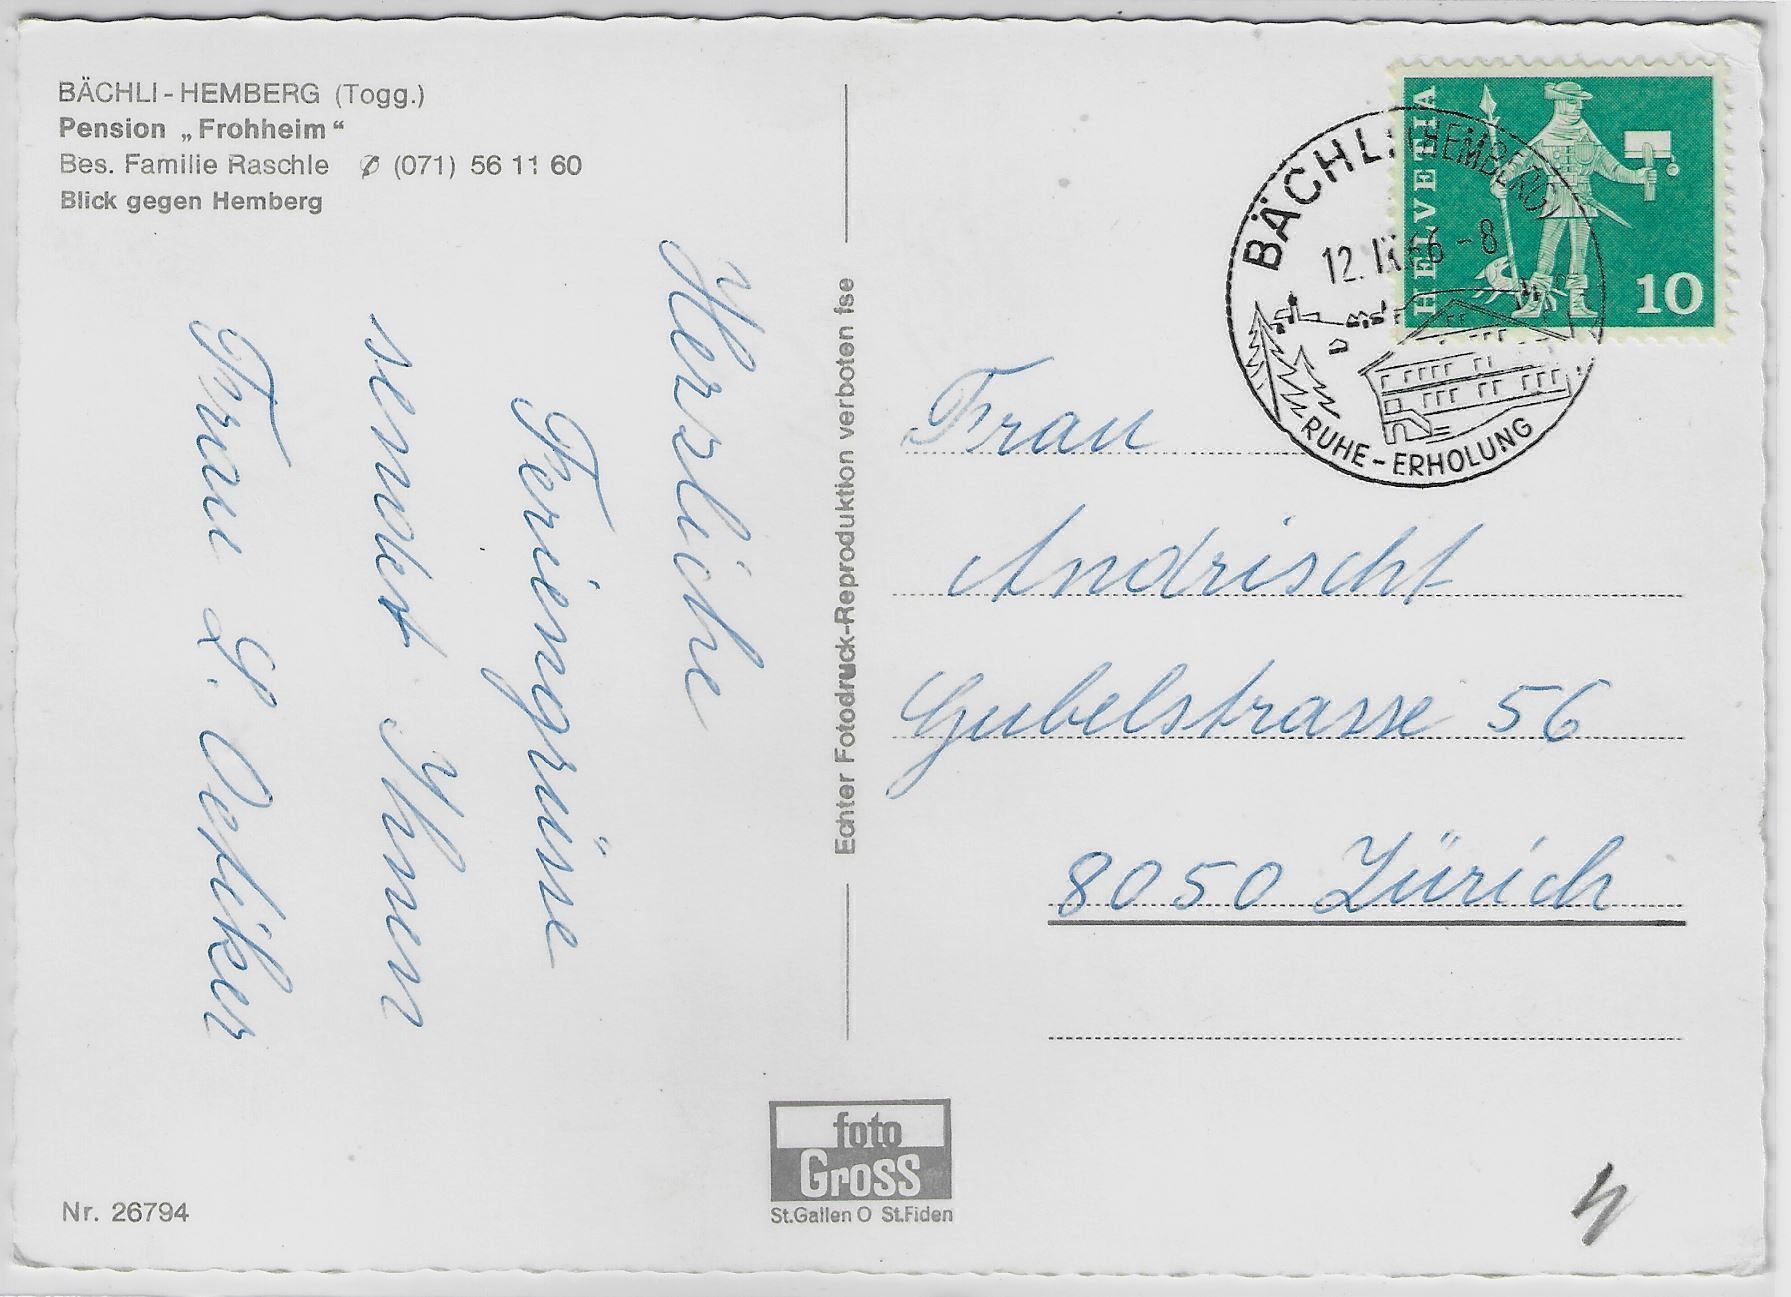 BÄCHLI - HEMBERG (Togg.)
Pension „Frohheim“
Bes. Familie Raschle ✆ (071) 56 11 60
Blick gegen Hemberg
Herzliche
Feriengrüsse
sendet Ihnen
Frau L. Oetiker
Echter Fotodruck-Reproduktion verboten fse
HELVETIA
10
BÄCHLI (HEMBERG)
12. IX. 66 - 8
RUHE - ERHOLUNG
Frau
Andrischt
Gubelstrasse 56
8050 Zürich
foto
Gross
St.Gallen O St.Fiden
Nr. 26794